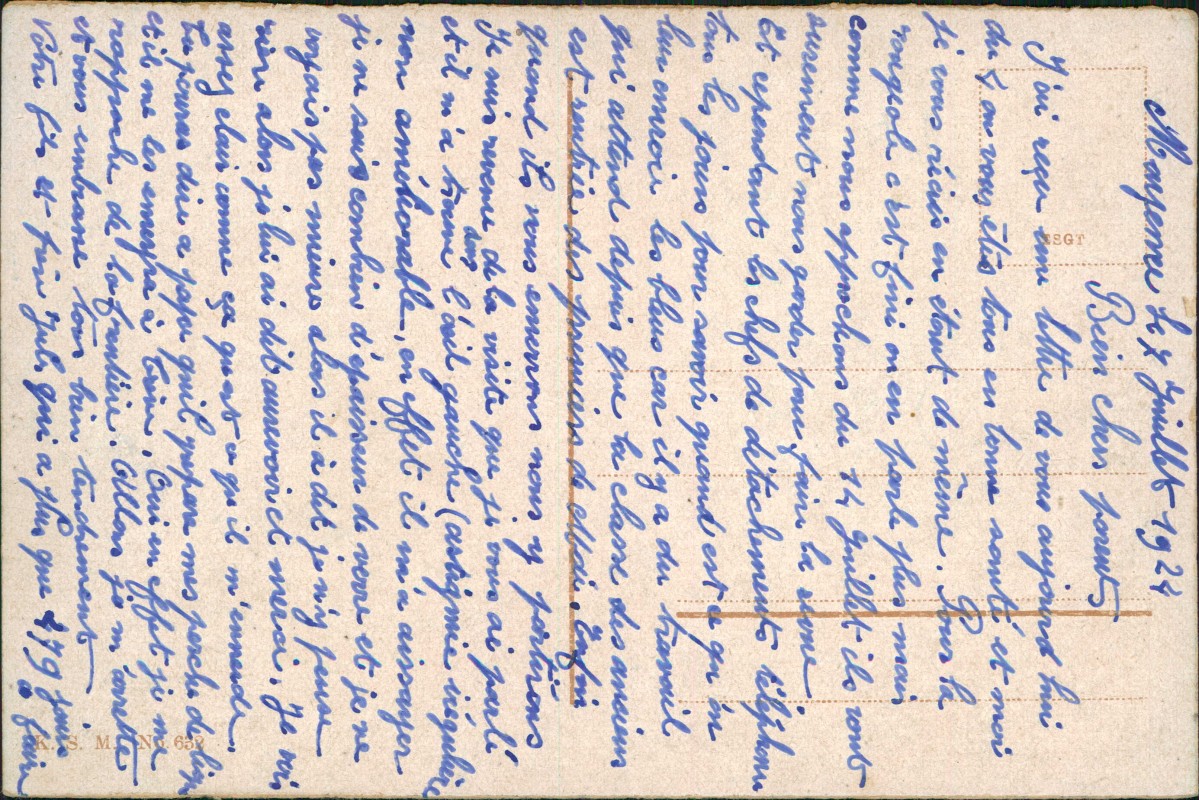 Mayence le 7 Juillet 1924
Bien chers parents
J'ai reçu une lettre de vous aujourd hui
du 5 ou vous êtes tous en bonne santé et moi
je vous écris en étant de même. Pour la
rougeole c'est fini on en parle plus mais
comme nous approchons du 14 Juillet ils vont
surement nous garder pour faire le
Et cependant les chefs de détachements téléphone
tous les jours pour savoir quand est ce qu'on
leur envoie les bleus car il y a du travail
qui attend depuis que la classe des anciens
est rentrée des premiers de Mai. Enfin
quand ils nous enverrons nous y partirons
Je suis revenu de la visite que je vous ai parlé
et il m'a trouvé dans l'œil gauche (astigmie irégulière
non améliorable, en effet il m'a essayer
je ne sais combien d'épaisseur de verre et je ne
voyais pas mieux alors il a dit je n'y peux
rien alors je lui ai dit aurevoir et merci. Je vois
assez clair comme ça quest ce qu'il m'emmerde.
Tu pourras dire a papa quil prépare mes perche de ligne
et il ne les enverra à Oui en effet je me
rapproche de la frontière. Allons je m'arrête
et vous embrasse tous bien tendrement
Votre fils et frère Jules qui a plus que 479 jours
a faire
ESGT
K. S. M. No. 632